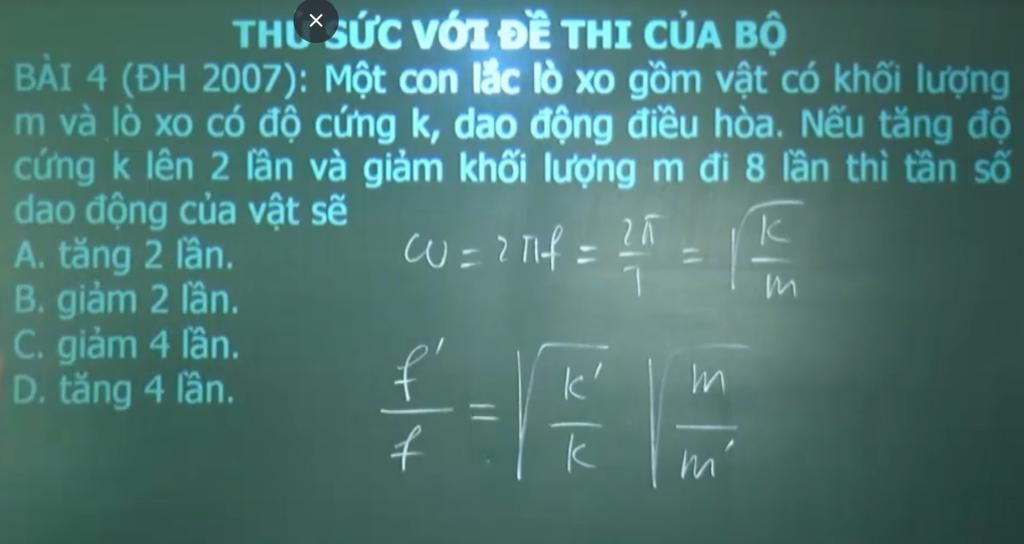 THỬ SỨC VỚI ĐỀ THI CỦA BỘ
BÀI 4 (ĐH 2007): Một con lắc lò xo gồm vật có khối lượng
m và lò xo có độ cứng k, dao động điều hòa. Nếu tăng độ
cứng k lên 2 lần và giảm khối lượng m đi 8 lần thì tần số
dao động của vật sẽ
A. tăng 2 lần.
B. giảm 2 lần.
C. giảm 4 lần.
D. tăng 4 lần.
ω = 2πf = 2π/T = √(k/m)
f'/f = √(k'/k) √(m/m')